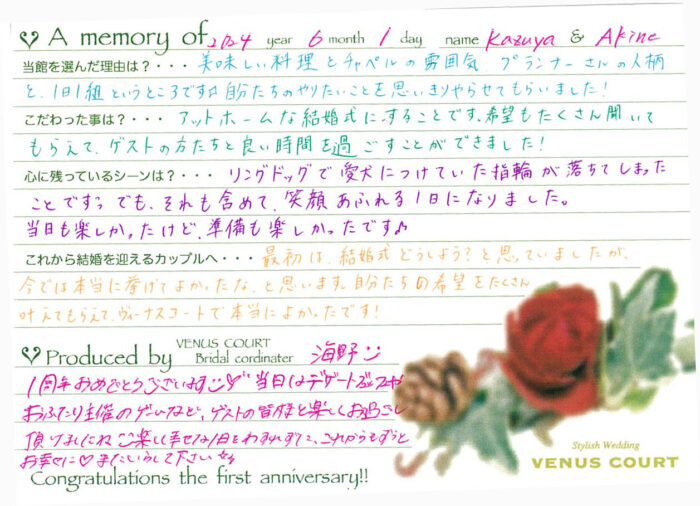 A memory of 2024 year 6 month 1 day name Kazuya & Akine
当館を選んだ理由は？・・・美味しい料理とチャペルの雰囲気 プランナーさんの人柄
と、1日1組というところです♫ 自分たちのやりたいことを思いきりやらせてもらいました!
こだわった事は？・・・アットホームな結婚式にすることです、希望もたくさん聞いて
もらえて、ゲストの方たちと良い時間を過ごすことができました!
心に残っているシーンは？・・・リングドッグで愛犬につけていた指輪が落ちてしまった
ことですっ でも、それも含めて、笑顔あふれる1日になりました。
当日も楽しかったけど、準備も楽しかったです♪
これから結婚を迎えるカップルへ・・・最初は、結婚式どうしよう?と思っていましたが、
今では本当に挙げてよかったな、と思います。自分たちの希望をたくさん
叶えてもらえて、ヴィーナスコートで本当によかったです!
Produced by VENUS COURT Bridal cordinater 海野
1周年おめでとうございます 当日はデザートブッフェや
おふたり主催のゲームなど、ゲストの皆様と楽しくお過ごし
頂けましたね ご楽しく幸せな1日をわすれずに、これからもずっと
お幸せに♡またいらして下さい
Congratulations the first anniversary!!
Stylish Wedding
VENUS COURT